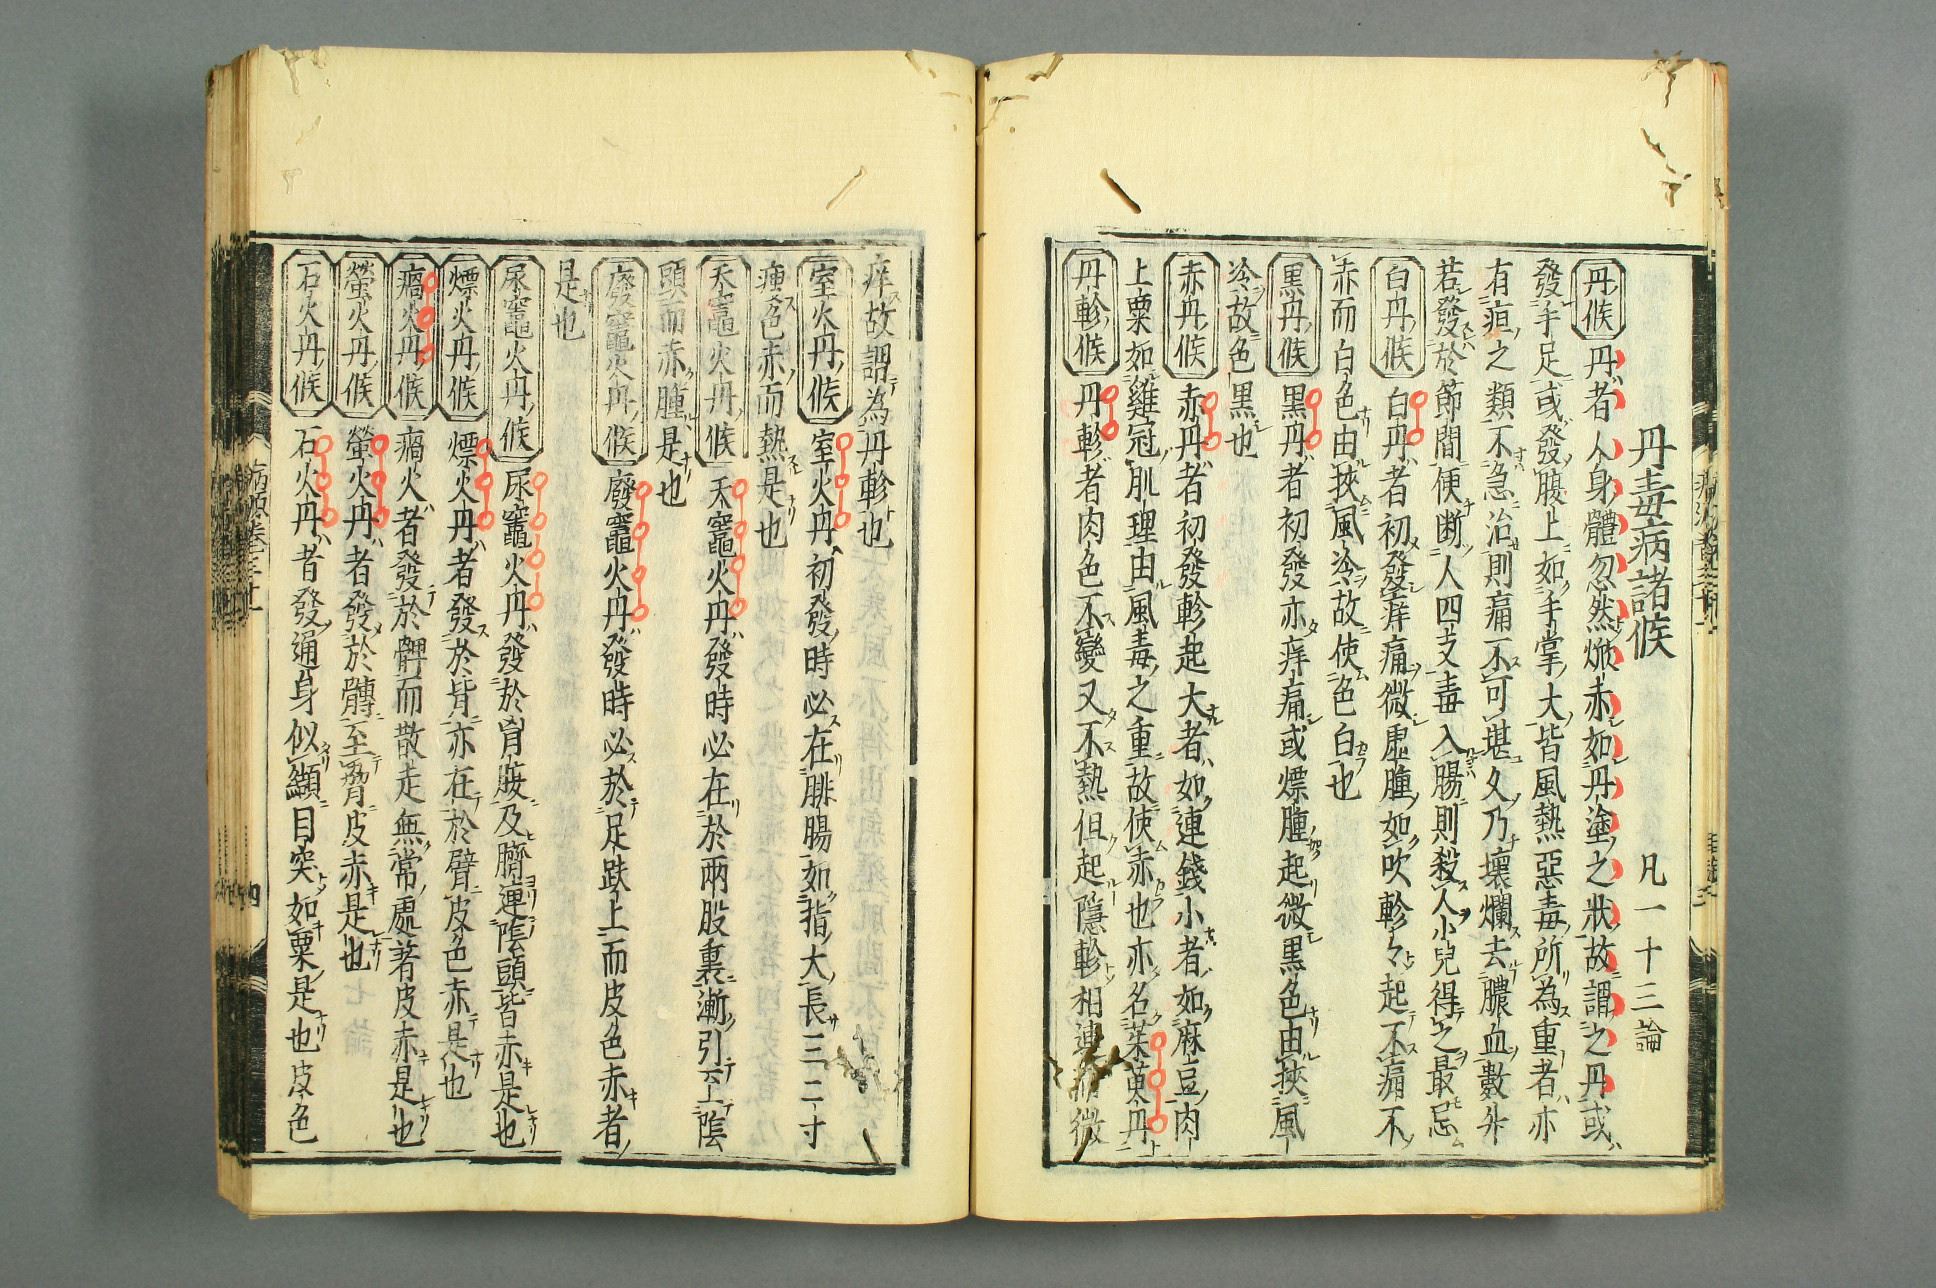 丹毒病諸候 凡一十三論
丹候 丹者人身體忽然焮赤如丹塗之狀故謂之丹或
發手足或發腹上如手掌大皆風熱惡毒所為重者亦
有疽之類不急治則痛不可堪久乃壞爛去膿血數升
若發於節間便断人四支毒入腸則殺人小兒得之最忌
白丹候 白丹者初發痒痛微虛腫如吹軫々起不痛不
赤而白色由挾風冷故使色白也
黒丹候 黒丹者初發亦痒痛或㷄腫起微黒色由挾風
冷故色黒也
赤丹候 赤丹者初發軫起大者如連錢小者如麻豆肉
上粟如雞冠肌理由風毒之重故使赤也亦名茱萸丹
丹軫候 丹軫者肉色不變又不熱但起隱軫相連而微
痒故謂為丹軫也
室火丹候 室火丹初發時必在腓腸如指大長三二寸
瘇色赤而熱是也
天竈火丹候 天竈火丹發時必在於兩股裏漸引至陰
頭而赤腫是也
廢竈火丹候 廢竈火丹發時必於足趺上而皮色赤者
是也
尿竈火丹候 尿竈火丹發於胷腹及臍連陰頭皆赤是也
熛火丹候 熛火丹者發於背亦在於臂皮色赤是也
瘑火丹候 瘑火者發於髀而散走無常處著皮赤是也
螢火丹候 螢火丹者發於髆至脅皮赤是也
石火丹候 石火丹者發通身似纈目突如粟是也皮色
病源卷三十一
四